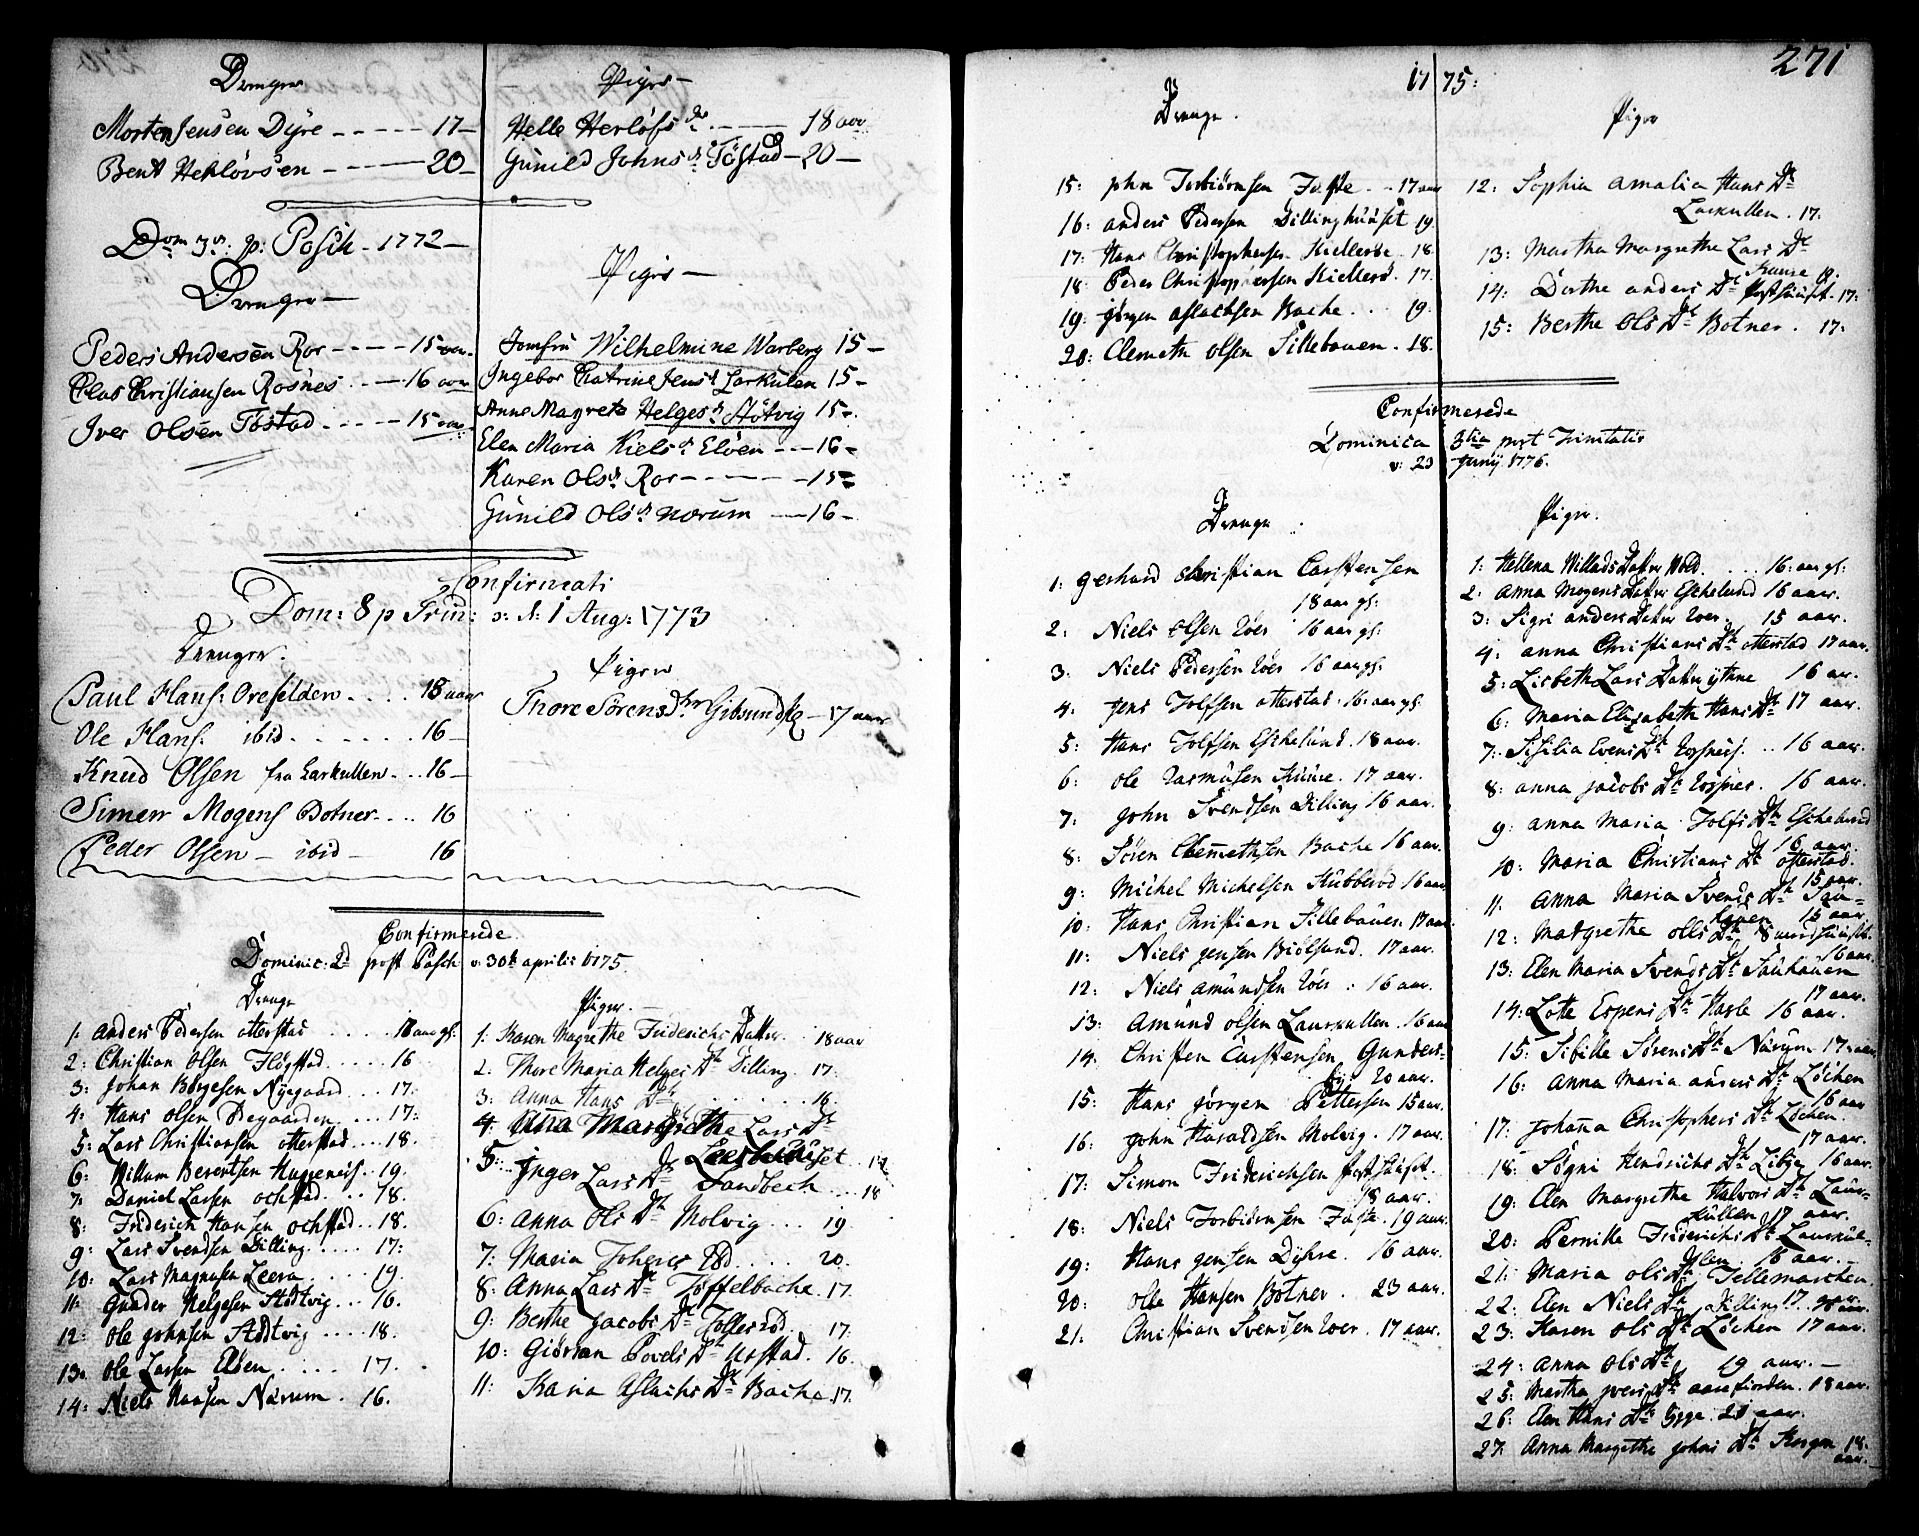 Drenger
Morten Jensen Dyre ----- 17-
Bent Herlovsen ---- 20-
Piger-
Helle Herlofs dr. ---- 18 aar
Gunild Johns dr Töstad - 20 -
Dom 3a: p: Pasch - 1772 -
Drenger -
Peder Andersen Ror ---- 15 aar.
Clas Christiansen Rosnes --- 16 aar
Iver Olsen Töstad ---- 15 aar
Piger -
Jomfru Wilhelmine Warberg 15 -
Ingebor Catrine Jens d Larkulen 15 -
Anne Magrete Helges d Stötvig 15 -
Elen Maria Niels d Elöen --- 16 -
Karen Ols d Ror ----- 15 -
Gunild Ols d Norum --- 16 -
Confirmati
Dom: 8 p Trin: d: 1 Aug: 1773
Drenger.
Paul Hans: Orefilden .... 18 aar
Ole Hans. ibid ...... 16 -
Knud Olsen fra Larkullen ... 16 -
Simen Mogens Botner .... 16
Peder Olsen - ibid - 16
Piger
Thore Sörens dtr Gibsund - 17 aar
Confirmerede
Dominic: 2d post Pasch d: 30te aprilis 1775.
Drenge
1: anders Pedersen otterstad ..... 18 aar gl:
2: Christian Olsen Flögstad ..... 16
3: Johan Börgesen Nyegaard .... 17:
4: Hans Olsen Degaarden .... 17:
5: Lars Christiansen otterstad ... 18.
6: Willum Berentsen .. 19.
7: Daniel Larsen ochstad ... 18.
8: Friderich Hansen ochstad .. 18.
9: Lars Svendsen Dilling ..... 17:
10: Lars Magnusen Leera .... 19.
11: Gunder Helgesen Stödtvig ... 16.
12: Ole Johnsen Stödtvig .... 18.
13. Ole Larsen Elöen ..... 17.
14: Niels Hansen Narum . 16.
Piger. -
1. Karen Magrethe Friderichs Datter .. 18 aar
2. Thore Maria Helges Dt Dilling. 17:
3: Anna Hans Dt ........ 16.
4: Anna Margrethe Lars Dt
17
5: Inger Lars Dt Sandbech ... 18
6: Anna Ols Dt Molvig ... 19.
7: Maria ..... 20.
8: Anna Lars Dt Töffelbache. 17.
9: Berthe Jacobs Dt .. 17:
10: Giöran Povels Dt Urstad. 16.
11: Karia Aslachs Dt Bache 17.
271
1775:
Drenge.
15: John Torbiörnsen Tofte .. 17 aar
16: anders Pedersen Dillinghuuset 19.
17: Hans Christophersen Kielleröe.. 18.
18: Peder Christophersen Kielleröd. 17.
19: Jörgen Aslachsen Bache ... 19.
20: Clemeth Olsen Sillebauen. 18.
Piger
12: Sophia Amalia Hans Dt
Larkullen. 17.
13: Martha Margrethe Lars Dt
Kuuse 19.
14: Dorthe anders Dt 17:
15: Berthe Ols Dt Botner. 17:
Confirmerede
Dominica 3tia post Trinitatis
d: 23 Junij 1776.
Drenge
1: Gerhard Christian Carstensen
18 aar gl:
2: Niels Olsen Roer 16 aar gl:
3: Niels Pedersen Roer 16 aar gl:
4: Jens Tolfsen otterstad. 16 aar gl:
5: Hans Tolfsen Eschelund. 18 aar.
6: Ole Rasmusen Kuuse. 17 aar.
7: John Svendsen Dilling 16 aar.
8: Sören Clemethsen Bache 16 aar.
9: Michel Michelsen Stubberöd 16 aar
10: Hans Christian Sillebauen 17 aar
11: Niels Jensen Biölsund. 17 aar.
12: Niels Amundsen Roer .. 16 aar.
13: Amund Olsen Laurkullen. 16 aar
14: Christen Carstensen Gunders-
bye 20 aar.
15: Hans Jörgen Pettersen 15 aar.
16: John Haraldsen Molvig. 17 aar.
17: Simon Friderichsen
18 aar.
18: Niels Torbiörnsen Tofte. 19 aar.
19: Hans Jensen Dyhre. 16 aar.
20: Olle Hansen Botner. 23 aar.
21: Christian Svendsen Roer. 17 aar.
Piger.
1: Hellena Willads Datter Wold .... 16. aar gl:
2: Anna Mogens Datter Eschelund 16 aar.
3: Sigri anders Datter Roer. 15 aar.
4: Anna Christians Dt otterstad 17 aar.
5: Lisbeth Lars Datter 16 aar.
6: Maria Elizabetha Hans Dt 17 aar.
7: Sisilia Evens Dt Rosnes. .. 16 aar.
8: Anna Jacobs Dt Rosnes. 16 aar.
9: Anna Maria Tolfs Dt Eschelund
16 aar.
10: Maria Christians Dt otterstad.
15 aar.
11: Anna Maria Svends Dt Sau-
hauen 15 aar.
12: Margrethe Olls Dt Sundhuuset.
16 aar.
13: Elen Maria Svends Dt Sauhauen
17 aar.
14: Lote Espens Dt Hasle 16 aar.
15: Sibille Sörens Dt Narum 17 aar
16: Anna Maria anders Dt Löchen
16 aar
17: Johanna Christophers Dt Löchen.
17 aar.
18: Sögni Hendrichs Dt 16 aar.
19: Elen Margrethe Halvors Dt Laur-
kullen 17 aar.
20: Pernille Friderichs Dt Laurkul-
len 16 aar.
21: Maria Ols Dt Tellemarchen
17 aar.
22: Elen Niels Dt Dilling
23: Karen Ols Dt Löchen 17 aar.
24: Anna Ols Dt 19 aar. -
25: Martha Ivers Dt aarefiorden. 18 aar.
26: Elen Hans Dt 21 aar.
27: Anna Margrethe Johns Dt 18.
aar.